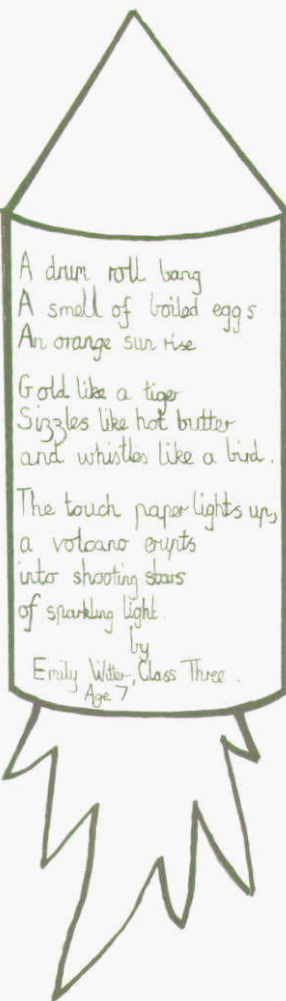 A drum roll bang
A smell of boiled eggs
An orange sun rise
Gold like a tiger
Sizzles like hot butter
and whistles like a bird.
The touch paper lights up,
a volcano erupts
into shooting stars
of sparkling light.
by
Emily Witter, Class Three.
Age 7